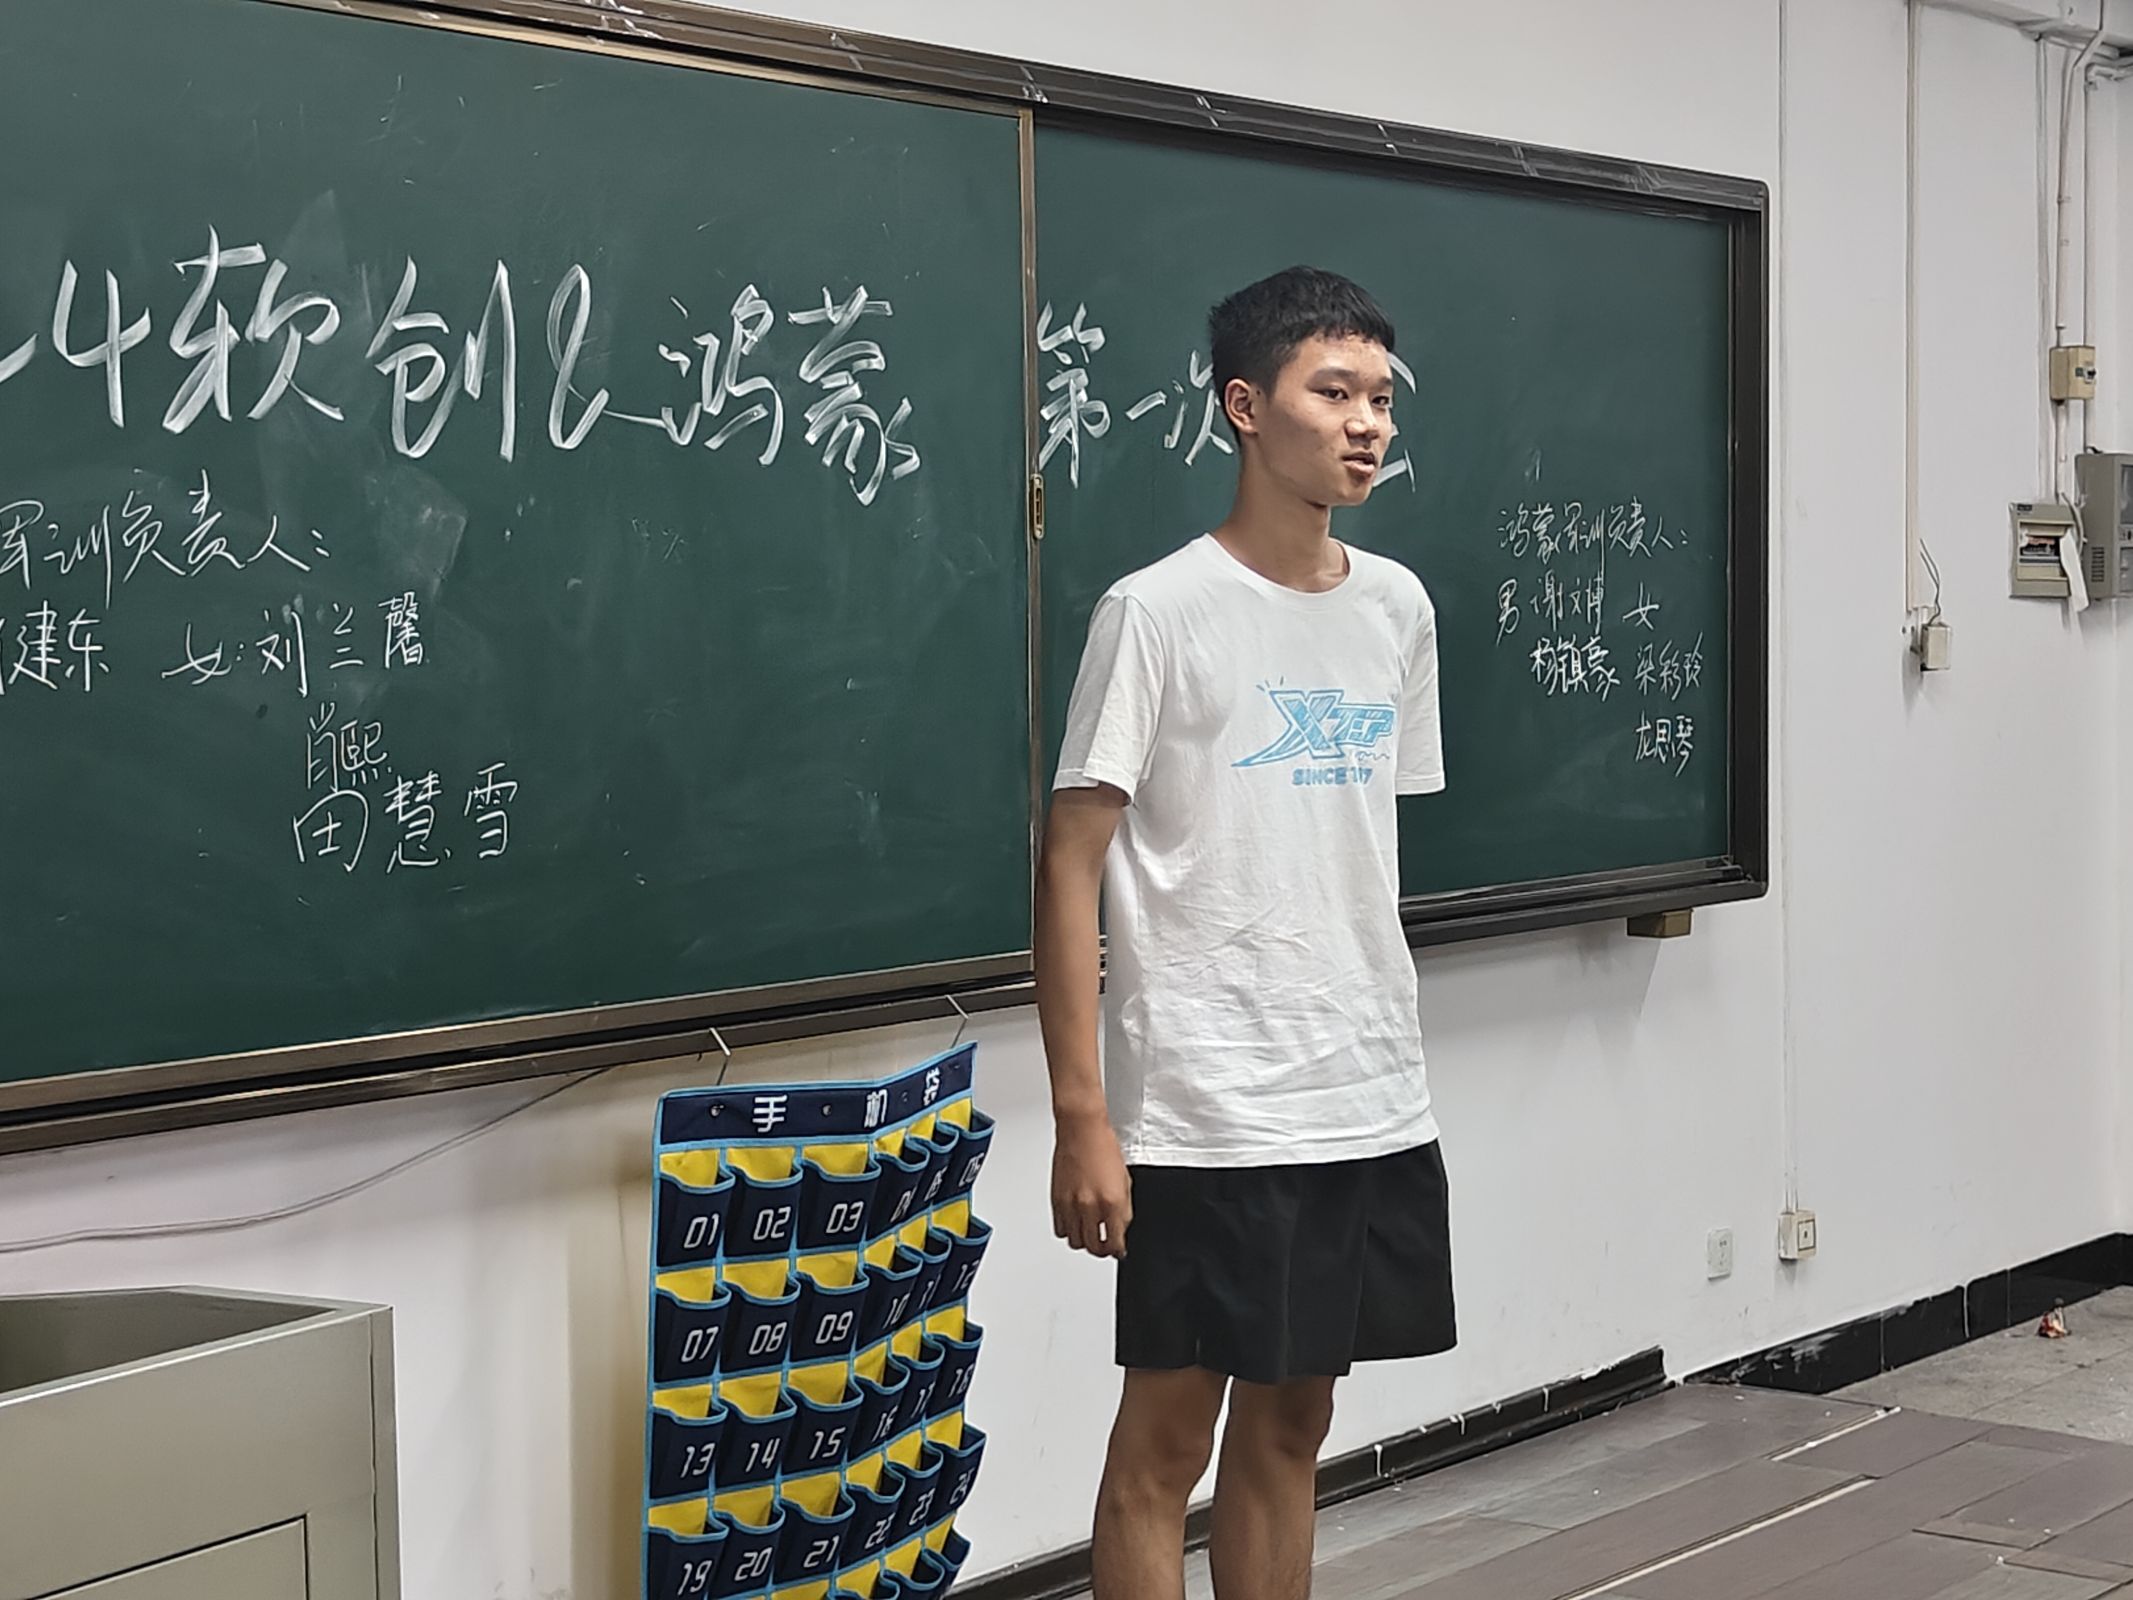 -4软创&鸿蒙 第一次会
军训负责人:
健东 女:刘兰馨
肖熙
田慧雪
鸿蒙军训负责人:
男 谢文博 女
杨镇豪 梁彩玲
龙思琴
XTEP
SINCE
手机袋
01 02 03 04 05 06
07 08 09 10 11 12
13 14 15 16 17 18
19 20 21 22 23 24